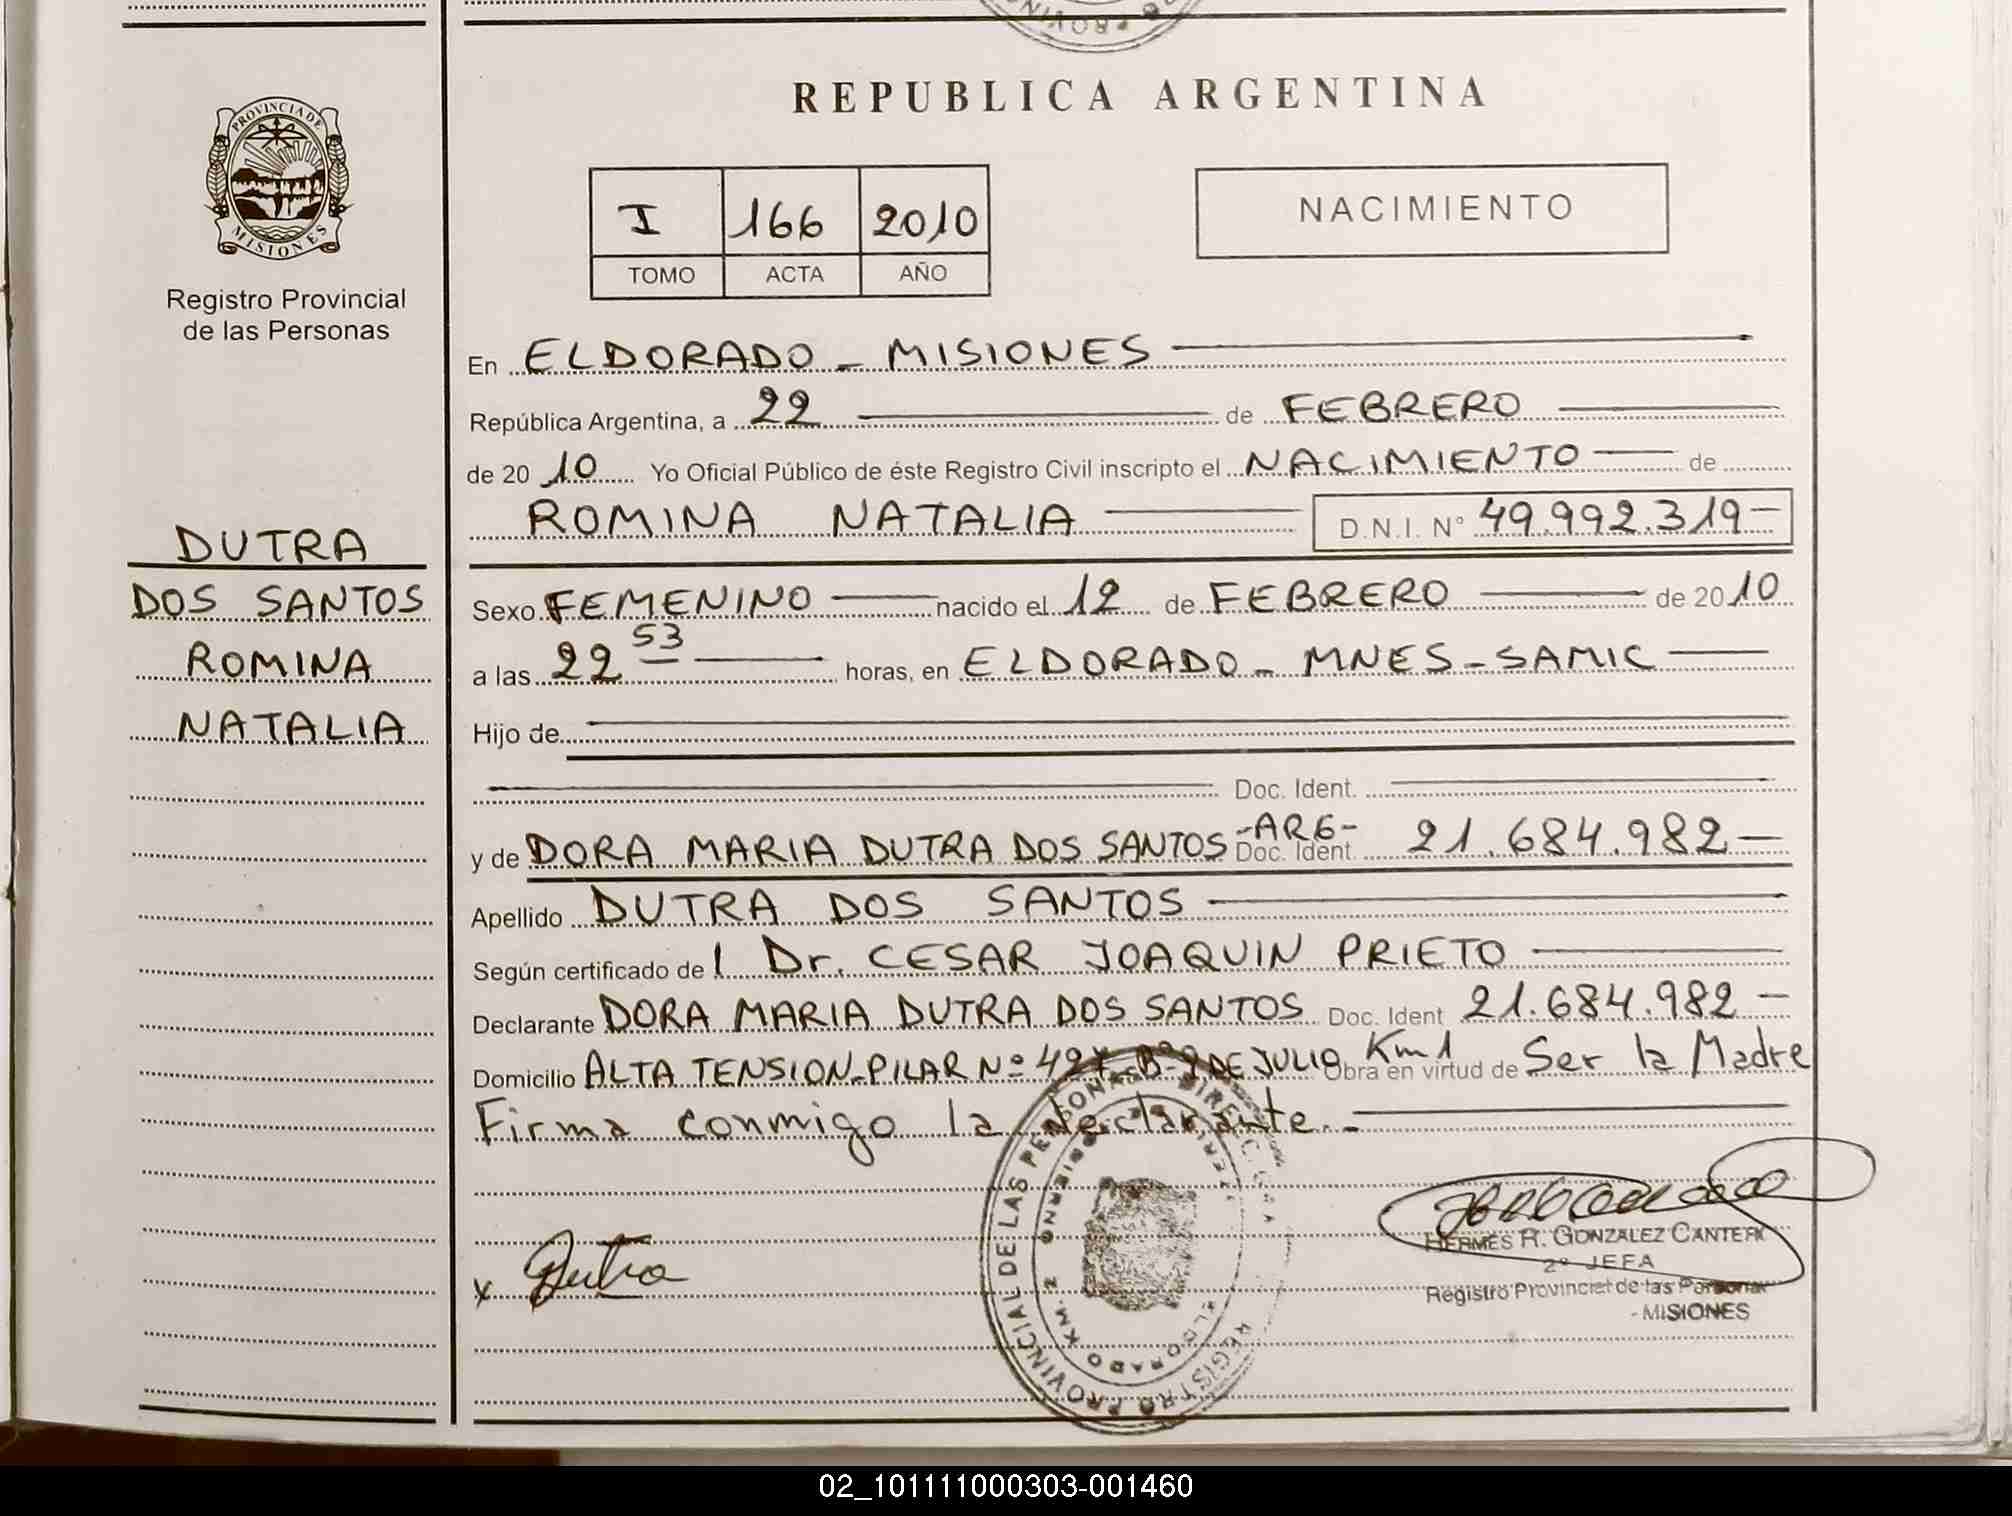 REPUBLICA ARGENTINA
PROVINCIA DE
MISIONES
Registro Provincial
de las Personas
I 166 2010
TOMO ACTA AÑO
NACIMIENTO
En ELDORADO - MISIONES
República Argentina, a 22 de FEBRERO
de 20 10 Yo Oficial Público de éste Registro Civil inscripto el NACIMIENTO de
ROMINA NATALIA D.N.I. N° 49.992.319-
DUTRA
DOS SANTOS
ROMINA
NATALIA
Sexo FEMENINO nacido el 12 de FEBRERO de 2010
a las 22 53 horas, en ELDORADO - MNES - SAMIC
Hijo de
Doc. Ident.
y de DORA MARIA DUTRA DOS SANTOS -ARG- Doc. Ident. 21.684.982-
Apellido DUTRA DOS SANTOS
Según certificado de l Dr. CESAR JOAQUIN PRIETO
Declarante DORA MARIA DUTRA DOS SANTOS Doc. Ident 21.684.982-
Domicilio ALTA TENSION-PILAR Nº B° 9 DE JULIO Km 1 Obra en virtud de Ser la Madre
Firma conmigo la declarante.-
x Dutra
HERMES R. GONZALEZ CANTERA
2° JEFA
Registro Provincial de las Personas
- MISIONES
REGISTRO PROVINCIAL DE LAS PERSONAS
ELDORADO KM. 2
02_101111000303-001460